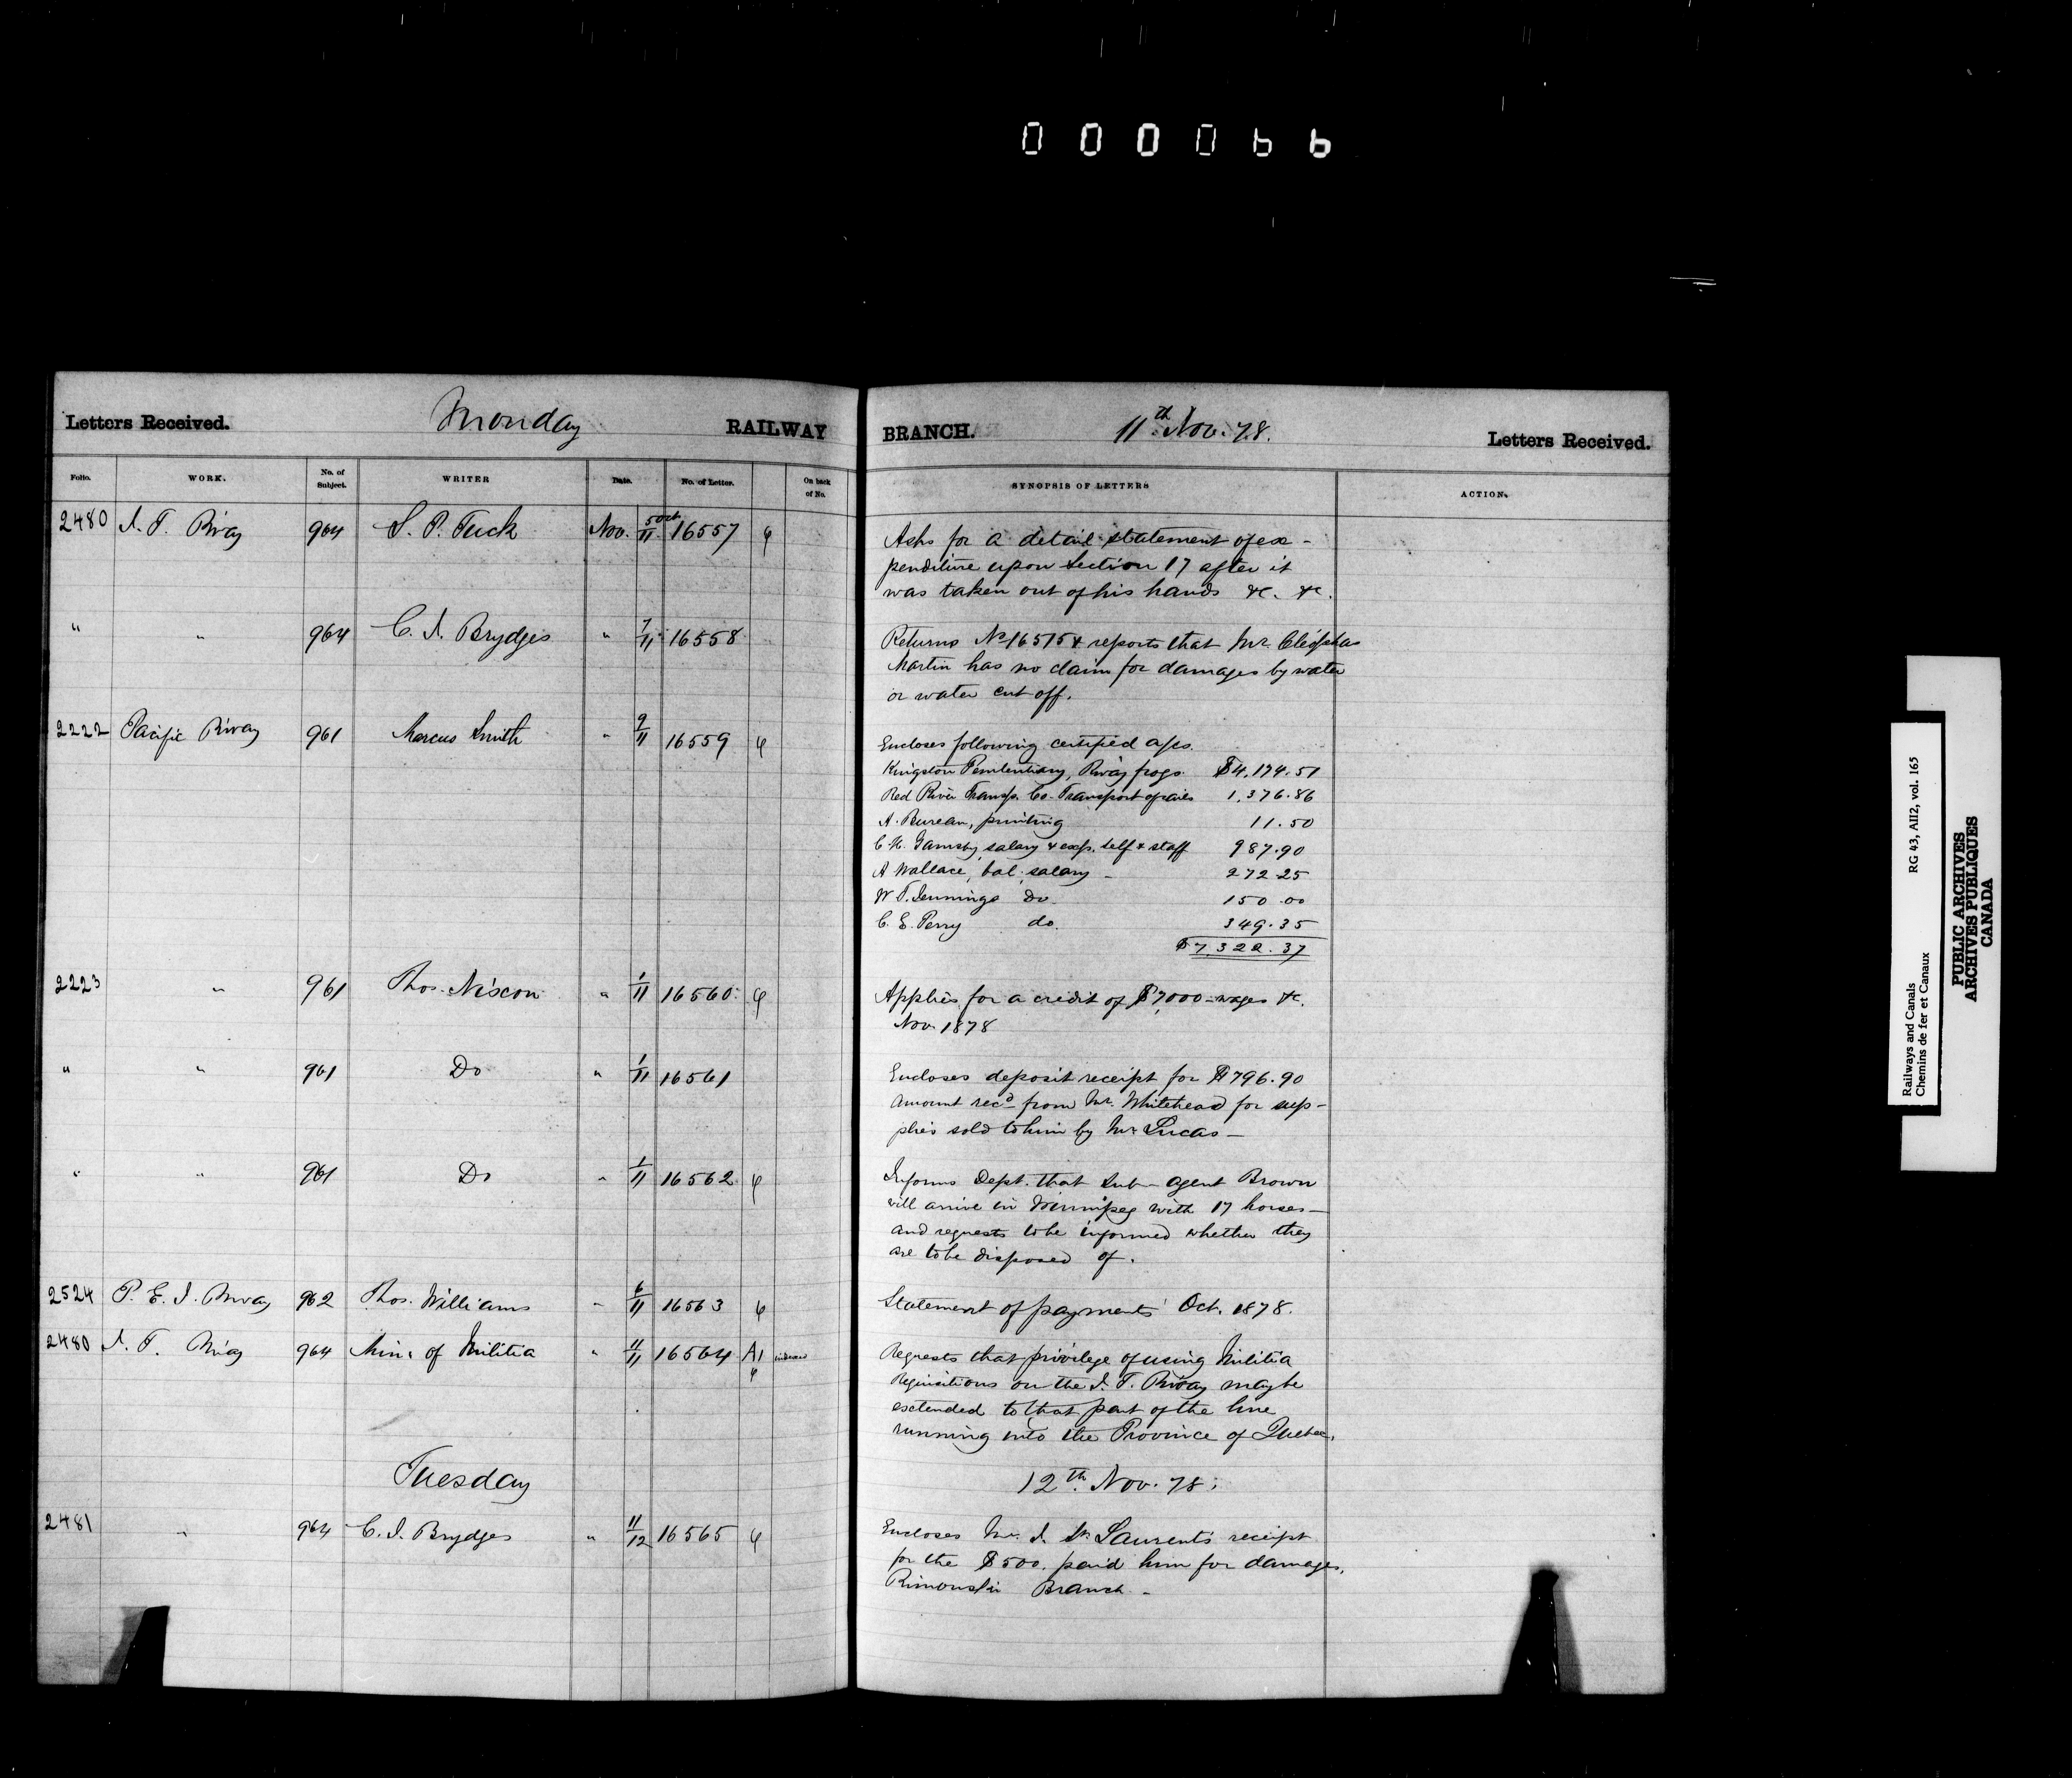 000066
Letters Received. Monday RAILWAY BRANCH. 11th Nov. 78. Letters Received.
Folio. WORK. No. of Subject. WRITER Date. No. of Letter. On back of No. SYNOPSIS OF LETTERS ACTION.
2480 I. T. Rway 964 S. P. Tuck Nov. 5 Oct/11 16557 φ Asks for a detail statement of ex-
penditure upon Section 17 after it
was taken out of his hands &c. &c.
" " 964 C. J. Brydges " 7/11 16558 Returns No 16515 & reports that Mr. Cléophas
Martin has no claim for damages by water
or water cut off.
2222 Pacific Rway 961 Marcus Smith " 9/11 16559 φ Encloses following certified a/cs.
Kingston Penitentiary, Rway frogs $4,174.51
Red River Transp. Co. Transport of rails 1,376.86
A. Bureau, printing 11.50
C. H. Gamsby, salary & exps. self & staff 987.90
A Wallace, bal. salary - 272.25
W. T. Jennings Do. 150.00
C. E. Perry do. 349.35
$7,322.37
2223 " 961 Thos. Nixon " 1/11 16560 φ Applies for a credit of $7,000 - wages &c.
Nov. 1878
" " 961 Do " 1/11 16561 Encloses deposit receipt for $796.90
amount recd from Mr. Whitehead for sup-
plies sold to him by Mr. Lucas -
" " 961 Do " 1/11 16562 φ Informs Dept. that sub-agent Brown
will arrive in Winnipeg with 17 horses -
and requests to be informed whether they
are to be disposed of.
2524 P. E. I. Rway 962 Thos. Williams " 6/11 16563 φ Statement of payments Oct. 1878.
2480 I. T. Rway 964 Min. of Militia " 11/11 16564 A1 φ Requests that privilege of using Militia
Requisitions on the I. T. Rway may be
extended to that part of the line
running into the Province of Quebec.
Tuesday 12th Nov. 78.
2481 " 964 C. J. Brydges " 11/12 16565 φ Encloses Mr. J. St. Laurent's receipt
for the $500. paid him for damages,
Rimouski Branch -
Railways and Canals RG 43, AII2, vol. 165
Chemins de fer et Canaux
PUBLIC ARCHIVES
ARCHIVES PUBLIQUES
CANADA